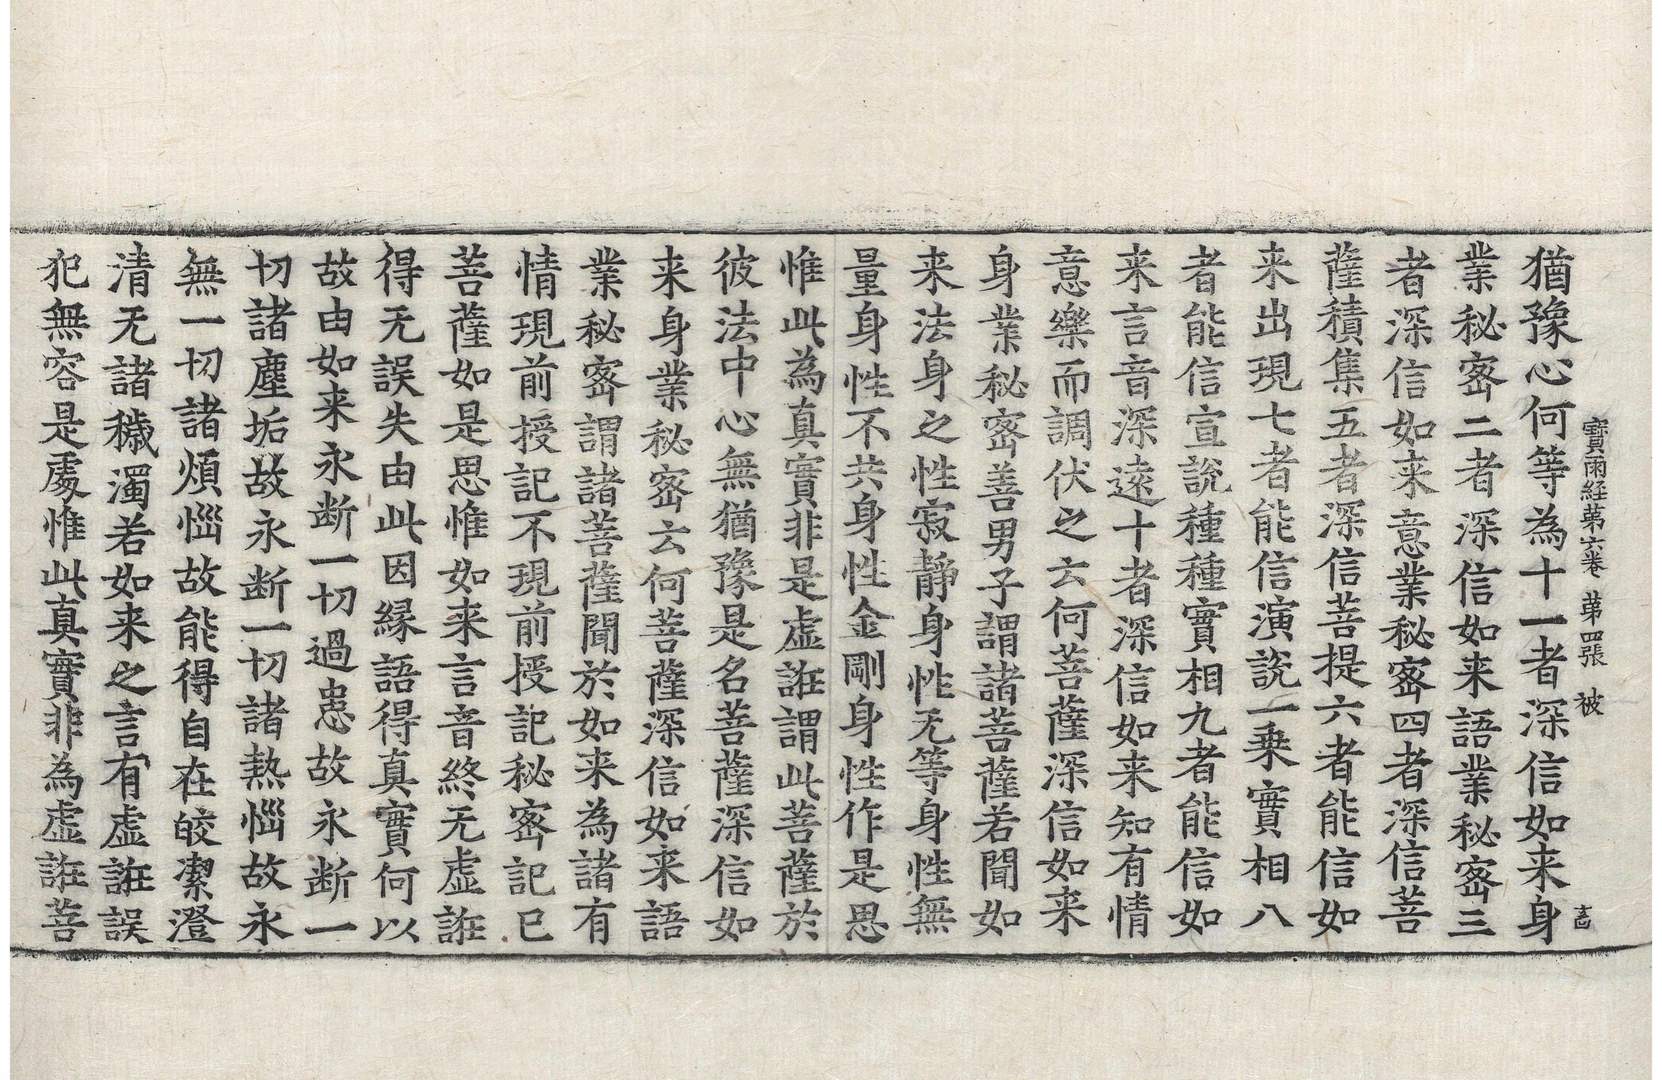 寶雨経第六卷 第四張 被
猶豫心何等為十一者深信如来身
業秘密二者深信如来語業秘密三
者深信如来意業秘密四者深信菩
薩積集五者深信菩提六者能信如
来出現七者能信演說一乗實相八
者能信宣說種種實相九者能信如
来言音深遠十者深信如来知有情
意樂而調伏之云何菩薩深信如来
身業秘密善男子謂諸菩薩若聞如
来法身之性寂静身性无等身性無
量身性不共身性金剛身性作是思
惟此為真實非是虛誑謂此菩薩於
彼法中心無猶豫是名菩薩深信如
来身業秘密云何菩薩深信如来語
業秘密謂諸菩薩聞於如来為諸有
情現前授記不現前授記秘密記已
菩薩如是思惟如来言音終无虛誑
得无誤失由此因縁語得真實何以
故由如来永断一切過患故永断一
切諸塵垢故永断一切諸熱惱故永
無一切諸煩惱故能得自在皎潔澄
清无諸穢濁若如来之言有虛誑誤
犯無容是處惟此真實非為虛誑菩